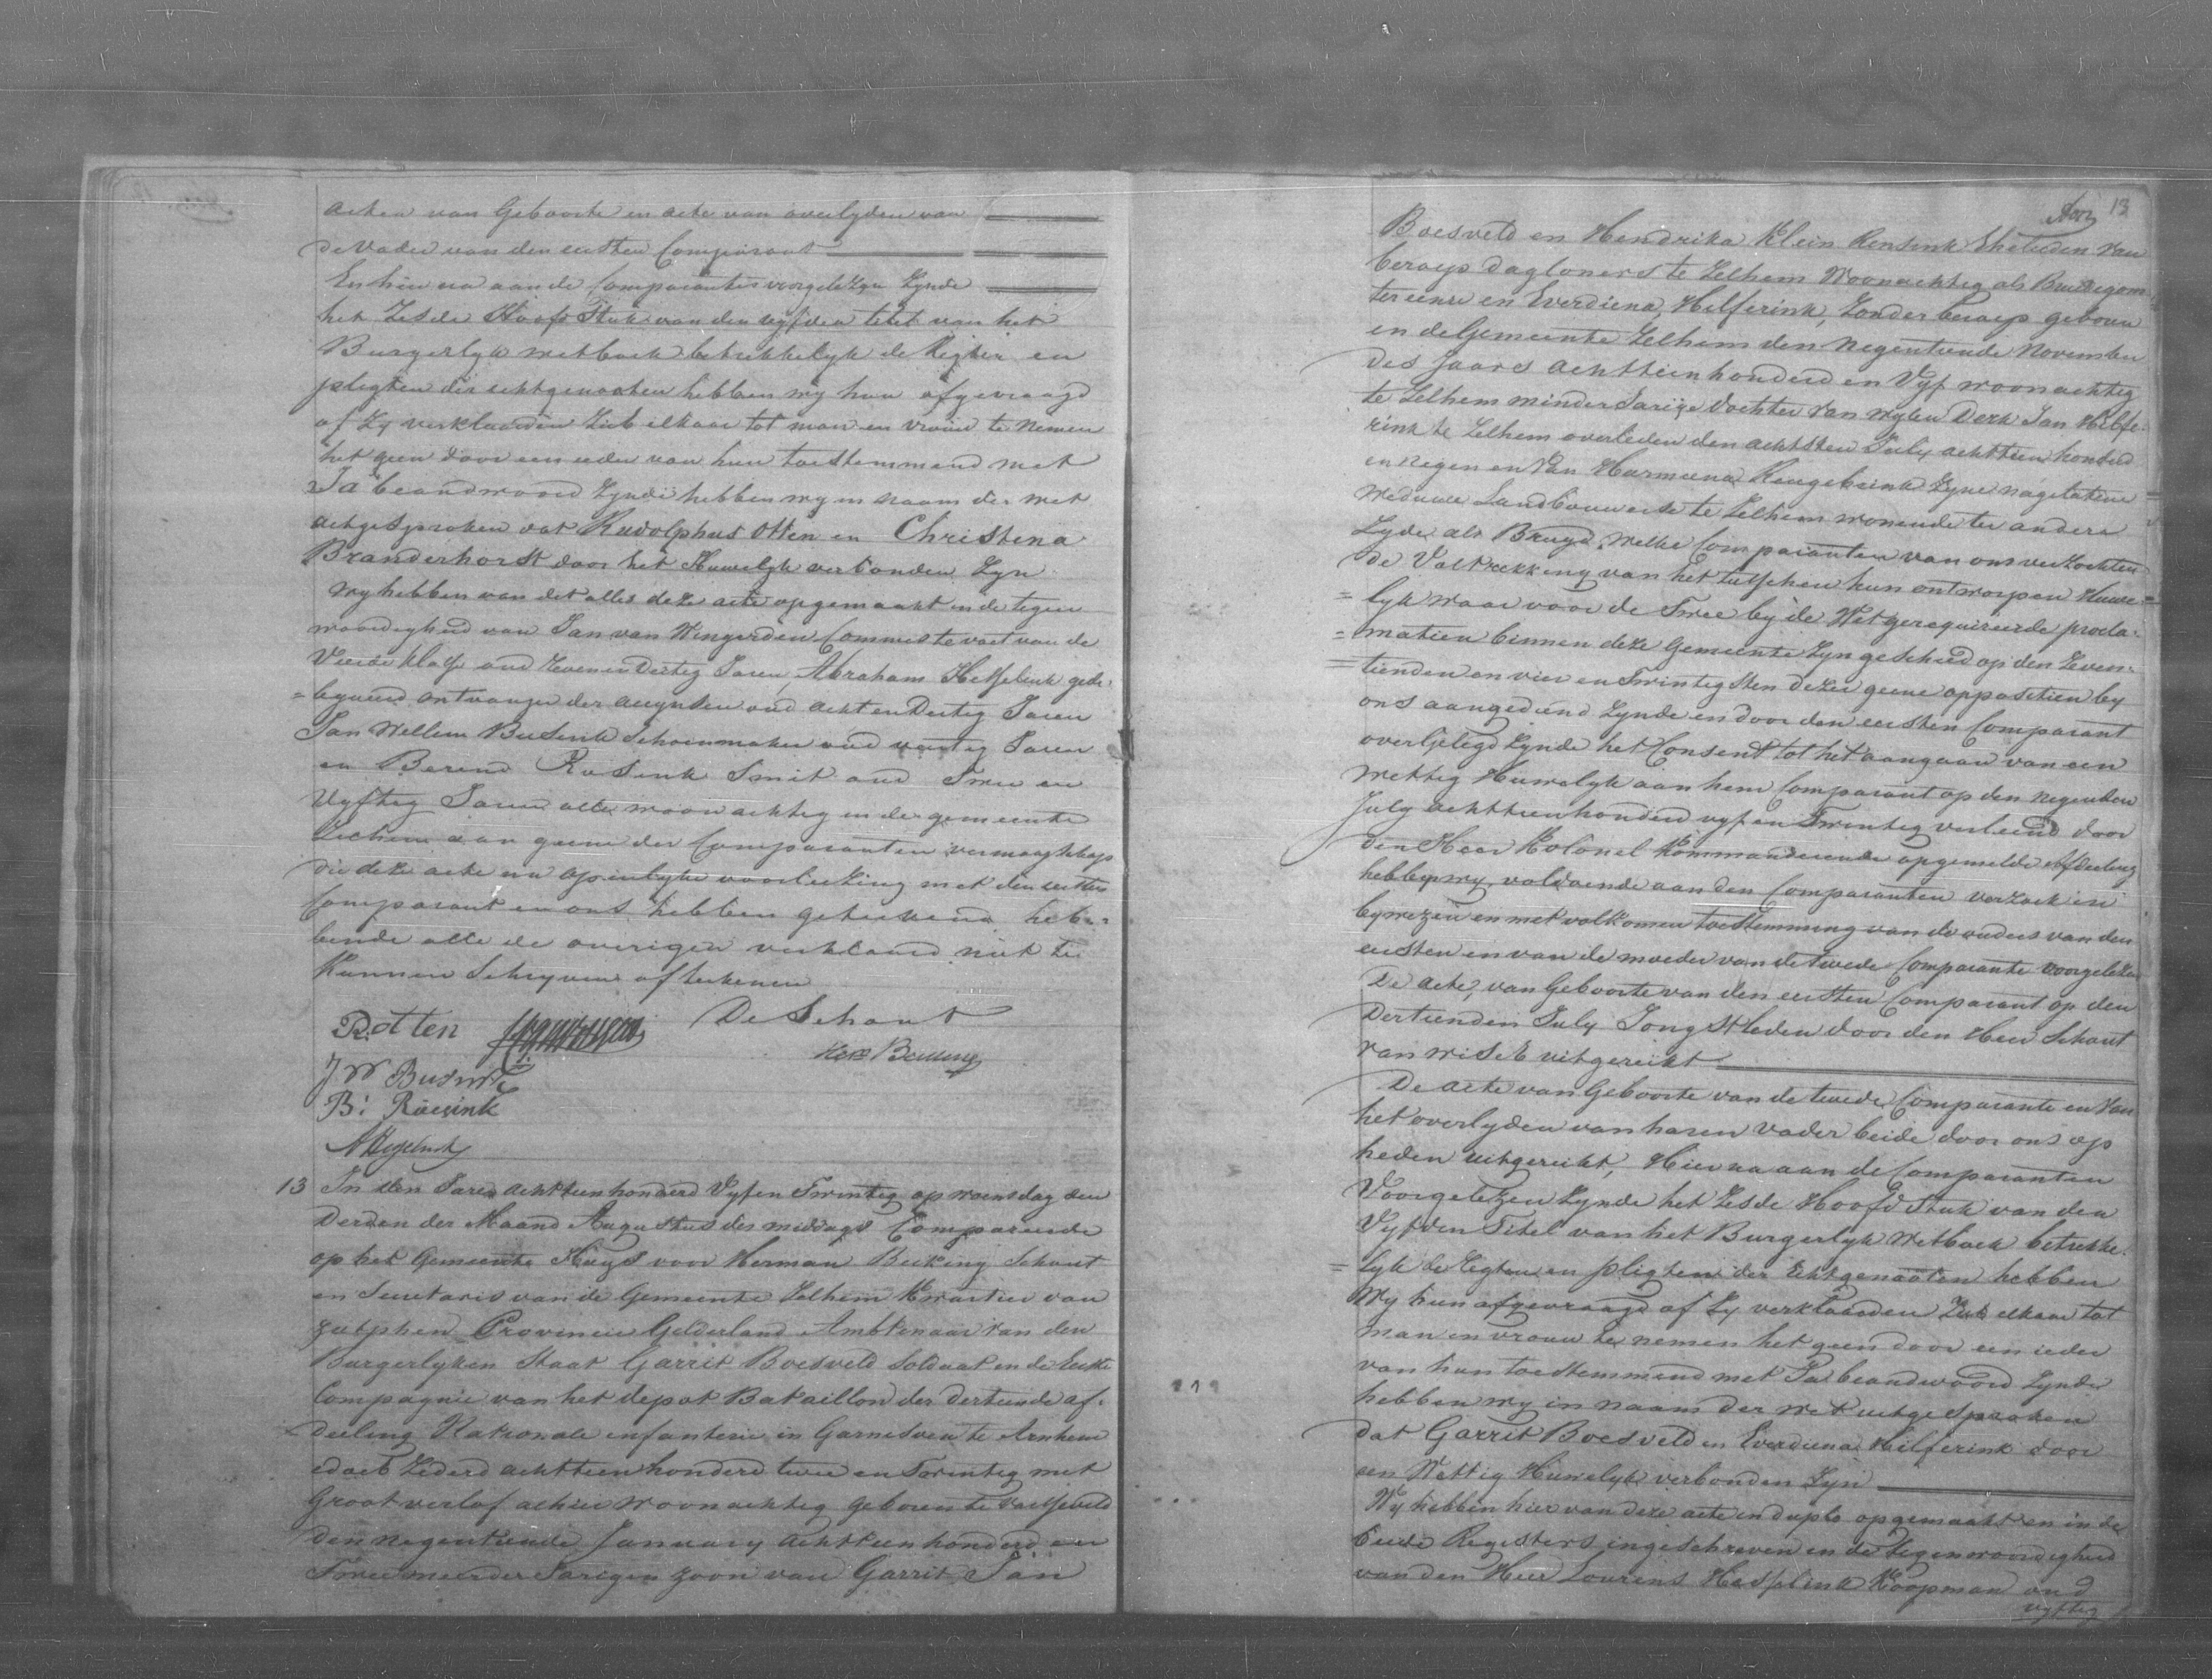 acten van Geboorte en acte van overlyden van
de vader van den eersten Comparant
En hier na aan de Comparanten voorgelezen Zynde
het Zesde Hoofd Stuk van den vyfden titel van het
Burgerlyk wetboek betrekkelyk de Regten en
pligten der echtgenooten hebben wy hun afgevraagd
of Zy verklaarden Zich elkaar tot man en vrouw te nemen
het geen door een ieder van hun toestemmend met
Ja beandwoord Zynde hebben wy in naam der wet
uitgesproken dat Rudolphus Otten en Christina
Branderhorst door het Huwelyk verbonden Zyn
wy hebben van dit alles deze acte opgemaakt in de tegen
woordigheid van Jan van Wingerden Commies te voet van de
Vierde klasse oud Zeven en Dertig Jaren, Abraham Hesselink
ontvanger der accynsen oud acht en Dertig Jaren
Jan Willem Busink Schoenmaker oud veertig Jaren
en Berend Rosink Smit oud Twee en
Vyftig Jaren alle woonachtig in de gemeente
Zelhem aan geene der Comparanten vermaagschap
die deze acte na openlyke voorlezing met den eersten
Comparant en ons hebben getekend heb=
bende alle de overigen verklaard niet te
Kunnen Schryven of tekenen
ROtten De Schout
HK Becking
JW Busink
B: Röesink
AHesselink
13 In den Jare achttienhonderd Vyf en Twintig op woensdag den
Derden der Maand Augustus des middags Compareerde
op het Gemeente Huys voor Herman Becking Schout
en Secretaris van de Gemeente Zelhem Kwartier van
Zutphen Provincie Gelderland Ambtenaar van den
Burgerlyken Staat Garrit Boesveld Soldaat in de Eerste
Compagnie van het depot Bataillon der dertiende af=
deeling Nationale infanterie in Garnisoen te Arnhem
edoch Zederd achttien honderd twee en Twintig met
Groot verlof alhier woonachtig geboren te Varsseveld
den negentiende January achttien honderd en
Twee minder Jarigen zoon van Garrit Jan
13
Boesveld en Hendrika Klein Rensink Ehelieden van
beroep dagloners te Zelhem Woonachtig als Bruidegom
ter eenre en Everdiena Hilferink, Zonder beroep geboren
in de Gemeente Zelhem den Negentiende November
des Jaars achttienhonderd en Vyf woonachtig
te Zelhem minder Jarige dochter van wylen Derk Jan Hilfe=
rink te Zelhem overleden den achtsten July achttien honderd
en negen en Van Harmiena Rengelink Zyne nagelatene
weduwe Landbouwersche te Zelhem wonende ter andere
Zyde als Bruyd, welke Comparanten van ons verzochten
de Voltrekking van het tusschen hun ontworpen Huwe=
=lyk waar voor de Twee by de Wet gerequireerde procla=
=matien binnen deze Gemeente Zyn geschied op den Zeven=
=tienden en vier en Twintigsten dezer geene oppositien by
ons aangediend Zynde en door den eersten Comparant
overgelegd Zynde het Consent tot het aangaan van een
wettig Huwelyk aan hem Comparant op den negenden
July achttienhonderd vyf en Twintig verleend door
den Heer Kolonel Kommanderende opgemelde Afdeeling
hebben wy, voldoende aan den Comparanten verzoek in
bywezen en met volkomen toestemming van de ouders van den
eersten en van de moeder van de twede Comparante voorgelezen
De acte, van Geboorte van den eersten Comparant op den
Dertienden July Jongstleden door den Heer Schout
van Wisch uitgereikt
De acte van Geboorte van de twede Comparante en van
het overlyden van haren vader beide door ons op
heden uitgereikt, Hier na aan de Comparanten
Voorgelezen Zynde het Zesde Hoofd Stuk van den
Vyfden Titel van het Burgerlyk wetboek betrekke=
=lyk de Regten en pligten der Echtgenooten hebben
Wy hun afgevraagd of Zy verklaarden Zich elkaar tot
man en vrouw te nemen het geen door een ieder
van hun toestemmend met Ja beandwoord Zynde
hebben wy in naam der wet uitgesproken
dat Garrit Boesveld en Everdiena Hilferink door
een Wettig Huwelyk verbonden Zyn
Wy hebben hier van deze acte in duplo opgemaakt en in de
beide Registers ingeschreven in de tegenwoordigheid
van den Heer Lourens Hesselink Koopman oud
vyftig